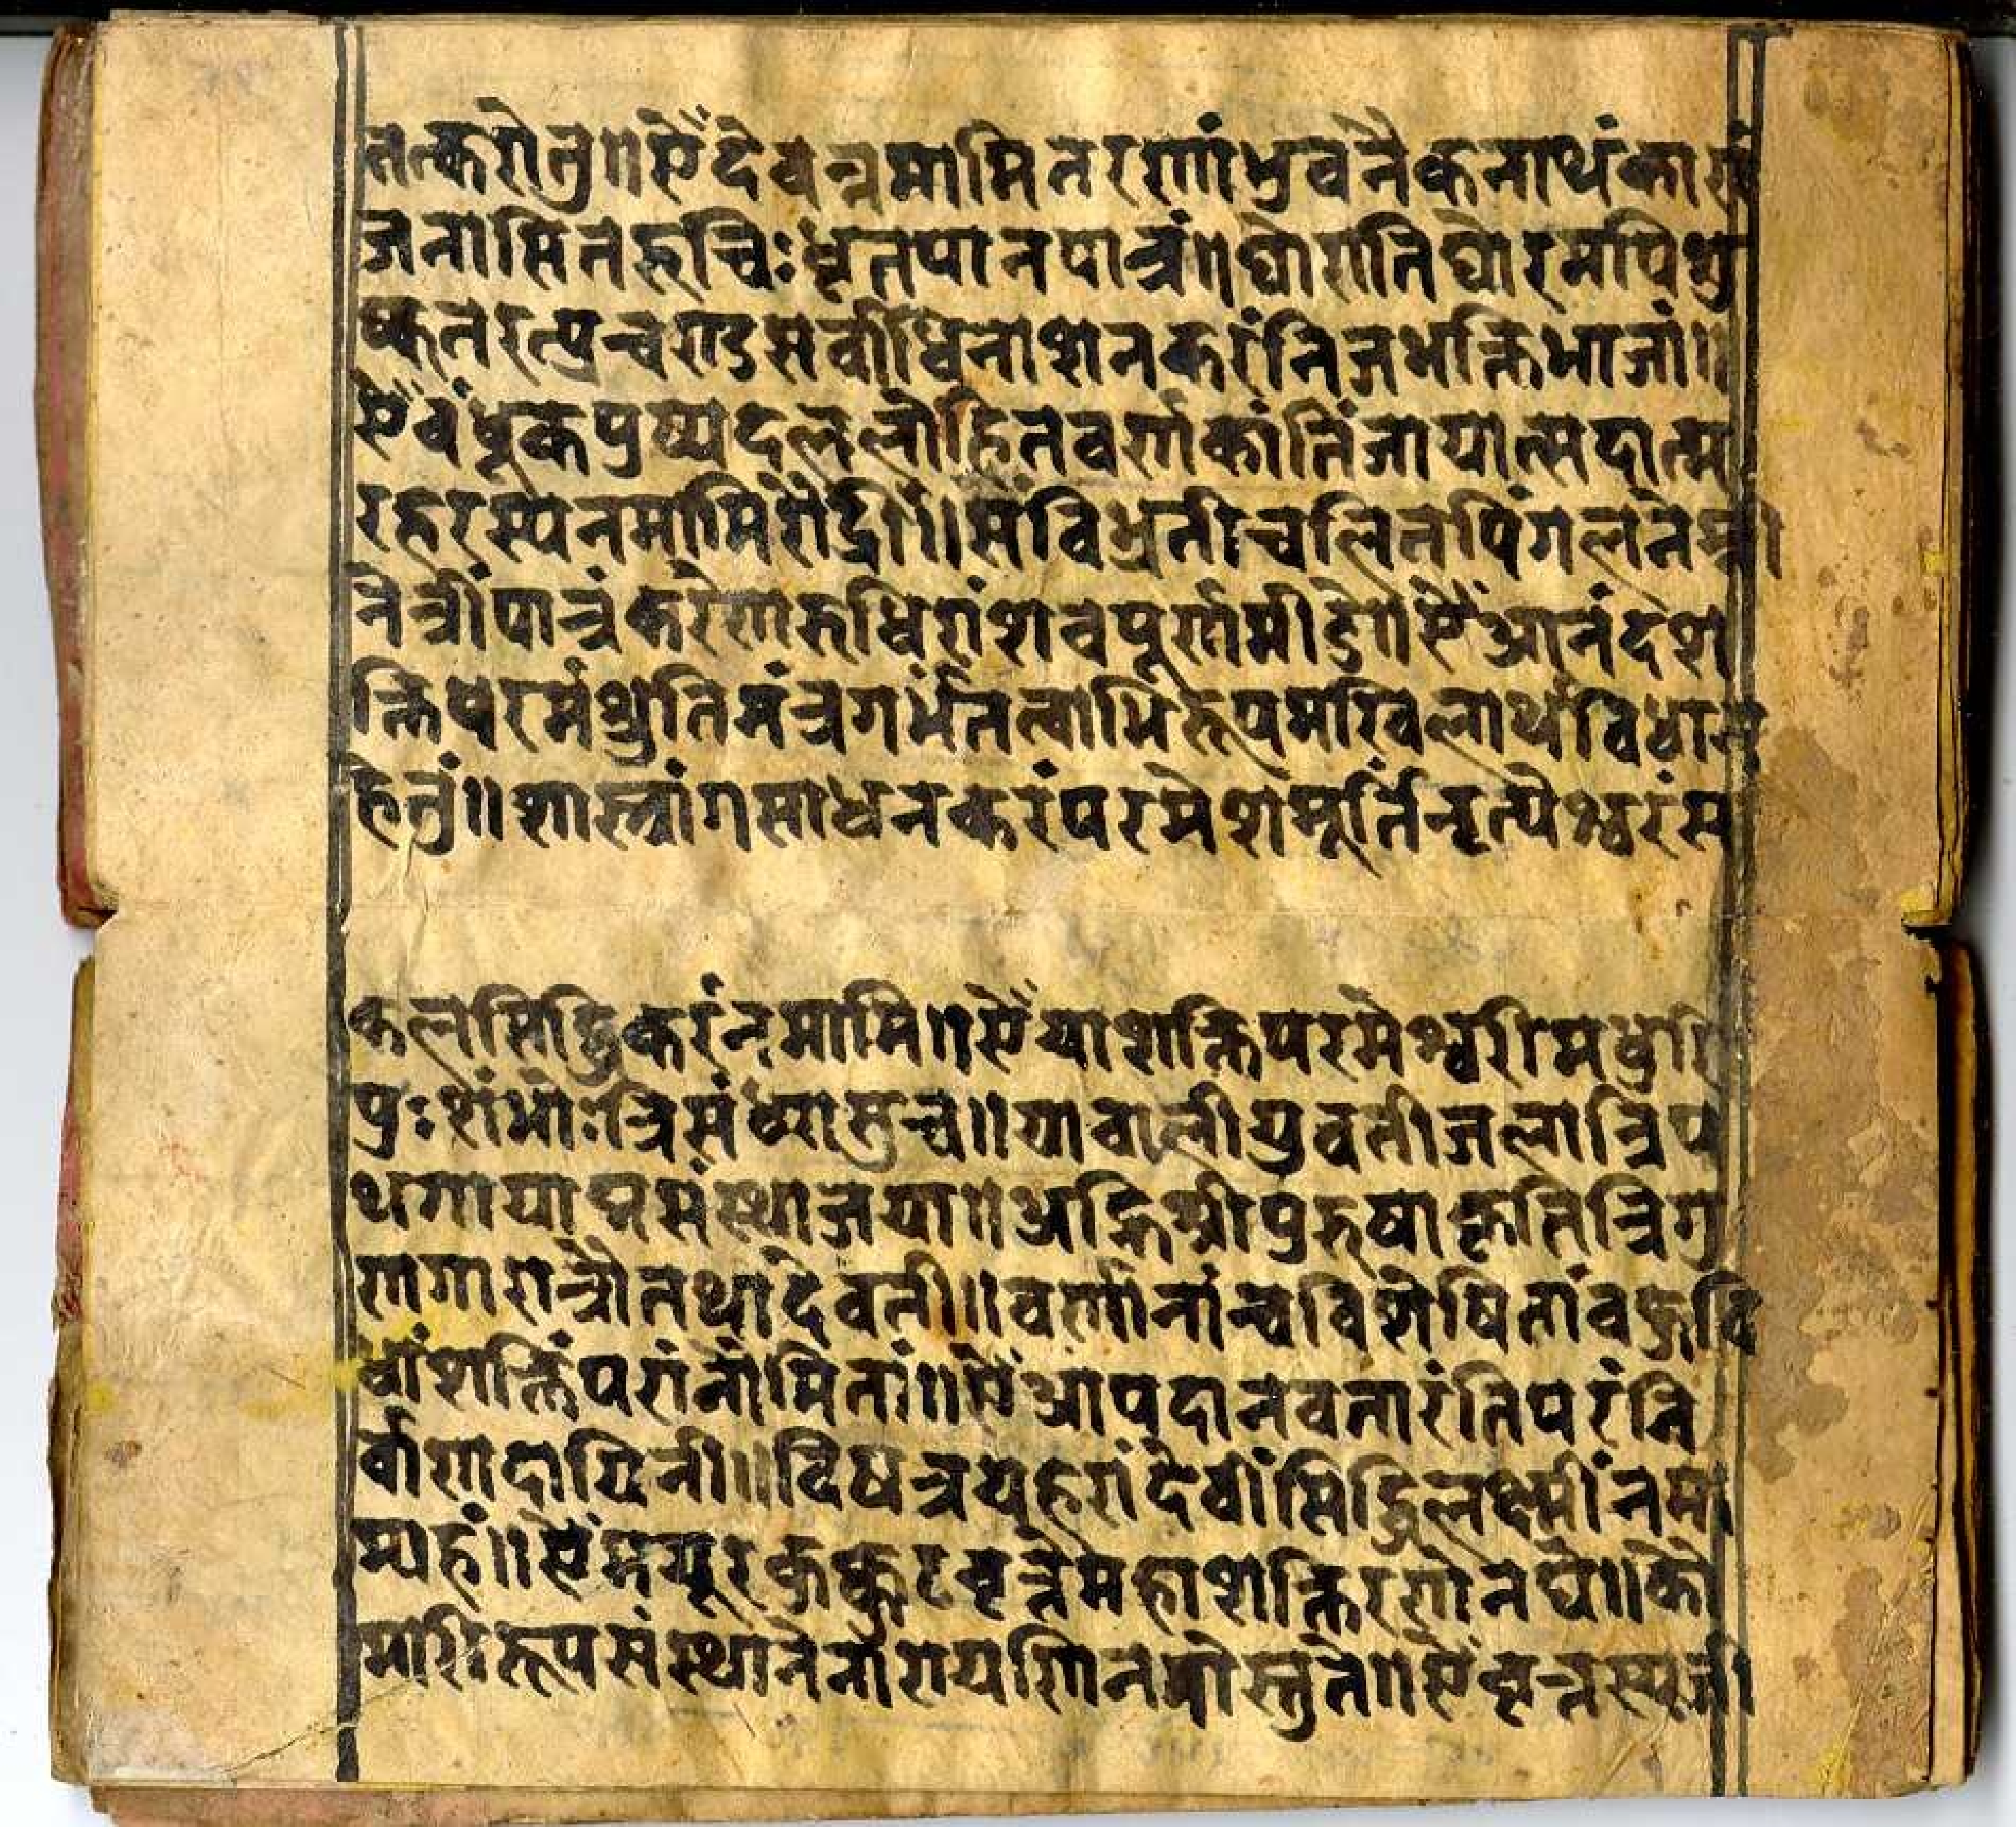 तत्करोतु॥ऐँदेवन्नमामितरणंभुवनैकनाथंकारुं
जनाप्तितरुचिःधृतपानपात्रं॥घोरातिघोरमपिभु
ष्कतरत्प्रचण्डसर्वाधिनाशनकरंनिजभक्तिभाजां॥
ऐँवंधूकपुष्पदललोहितवर्णकांतिंजायात्सदात्म
रहरस्यनमामिरौद्रीं॥संविभ्रतीचलितपिंगलनेत्री
नेत्रींपात्रंकरेणरुधिरांशवपूर्णमीडे॥ऐँआनंदश
क्तिपरमंश्रुतिमंत्रगर्भंतत्वाभिरूपमखिलार्थविधान
हेतुं॥शास्त्रांगसाधनकरंपरमेशमूर्तिनृत्येश्वरंस
कलसिद्धिकरंनमामि॥ऐँयाशक्तिपरमेश्वरीमधुरि
पुःशंभोःत्रिसंध्यासुच॥यावालीयुवतीजलात्रिप
थगायाब्रसंस्थाजया॥अह्निश्रीपुरुषाकृतित्रिगु
णगारात्रौतथादेवती॥वर्णानांन्चविशेषितांवज्रवि
वांशक्तिंपरांनौमितां॥ऐँआपदानवतारंतिपरंनि
र्वाणदायिनी॥विषत्रयहरांदेवींसिद्धिलक्ष्मींनमा
म्यहं॥ऐँमयूरकुक्कुटवृत्तेमहाशक्तिरणेनघे॥कौ
मारिरूपसंस्थानेनारायणिनमोस्तुते॥ऐँवृत्रस्यजी